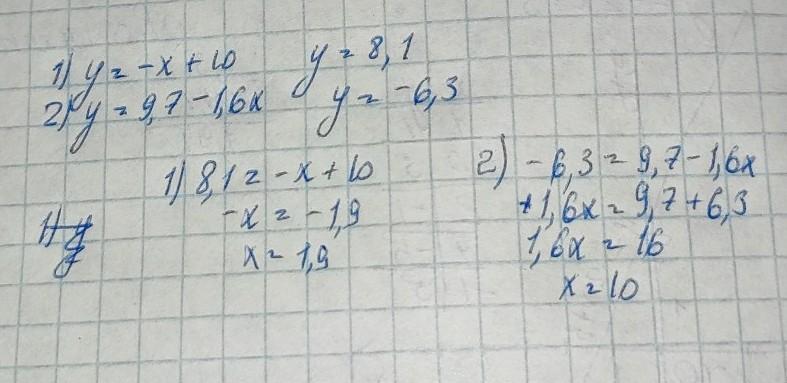 1) y = -x + 10 y = 8,1
2) y = 9,7 - 1,6x y = -6,3
1) 8,1 = -x + 10
-x = -1,9
x = 1,9
1) y
y
2) -6,3 = 9,7 - 1,6x
+1,6x = 9,7 + 6,3
1,6x = 16
x = 10